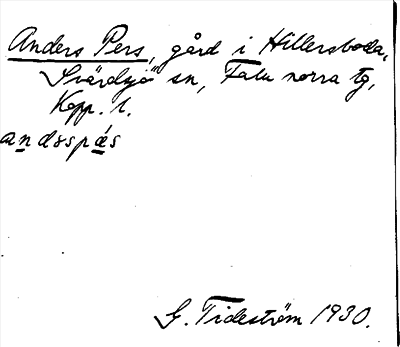 Anders Pers, gård i Hillersboda,
Svärdsjö sn, Falu norra tg,
Kopp. l.
andərspǽs
G. Tideström 1930.